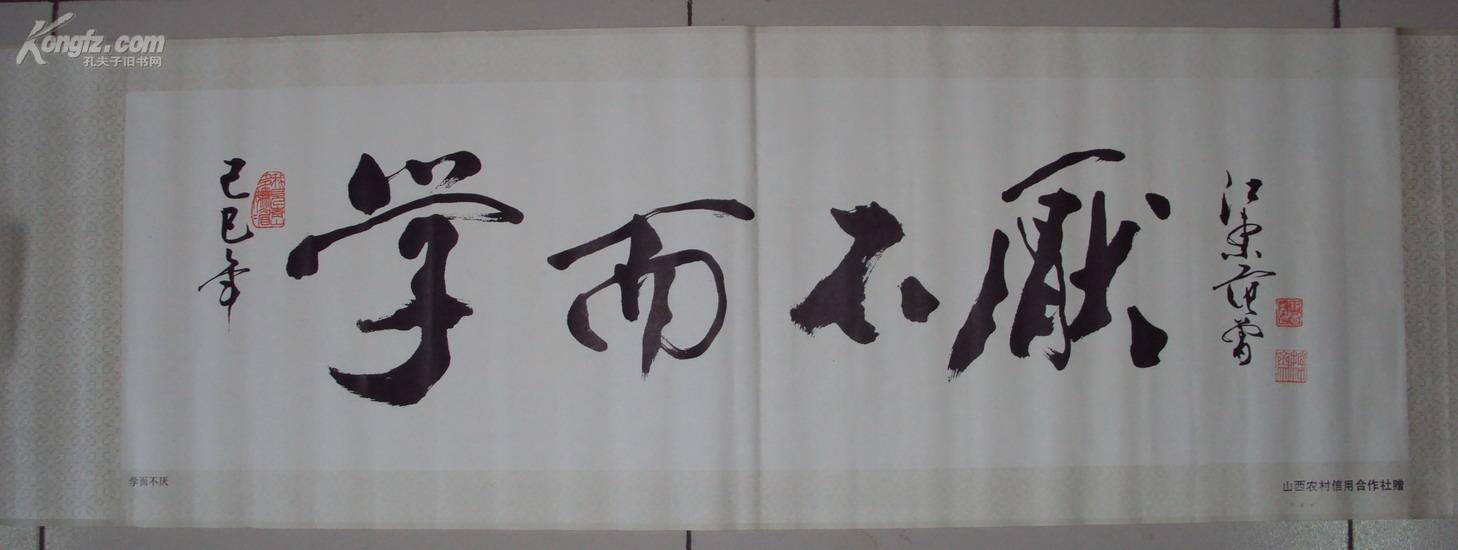 Kongfz.com
孔夫子旧书网
己巳年
学而不厭
江东范曾
学而不厌
山西农村信用合作社赠